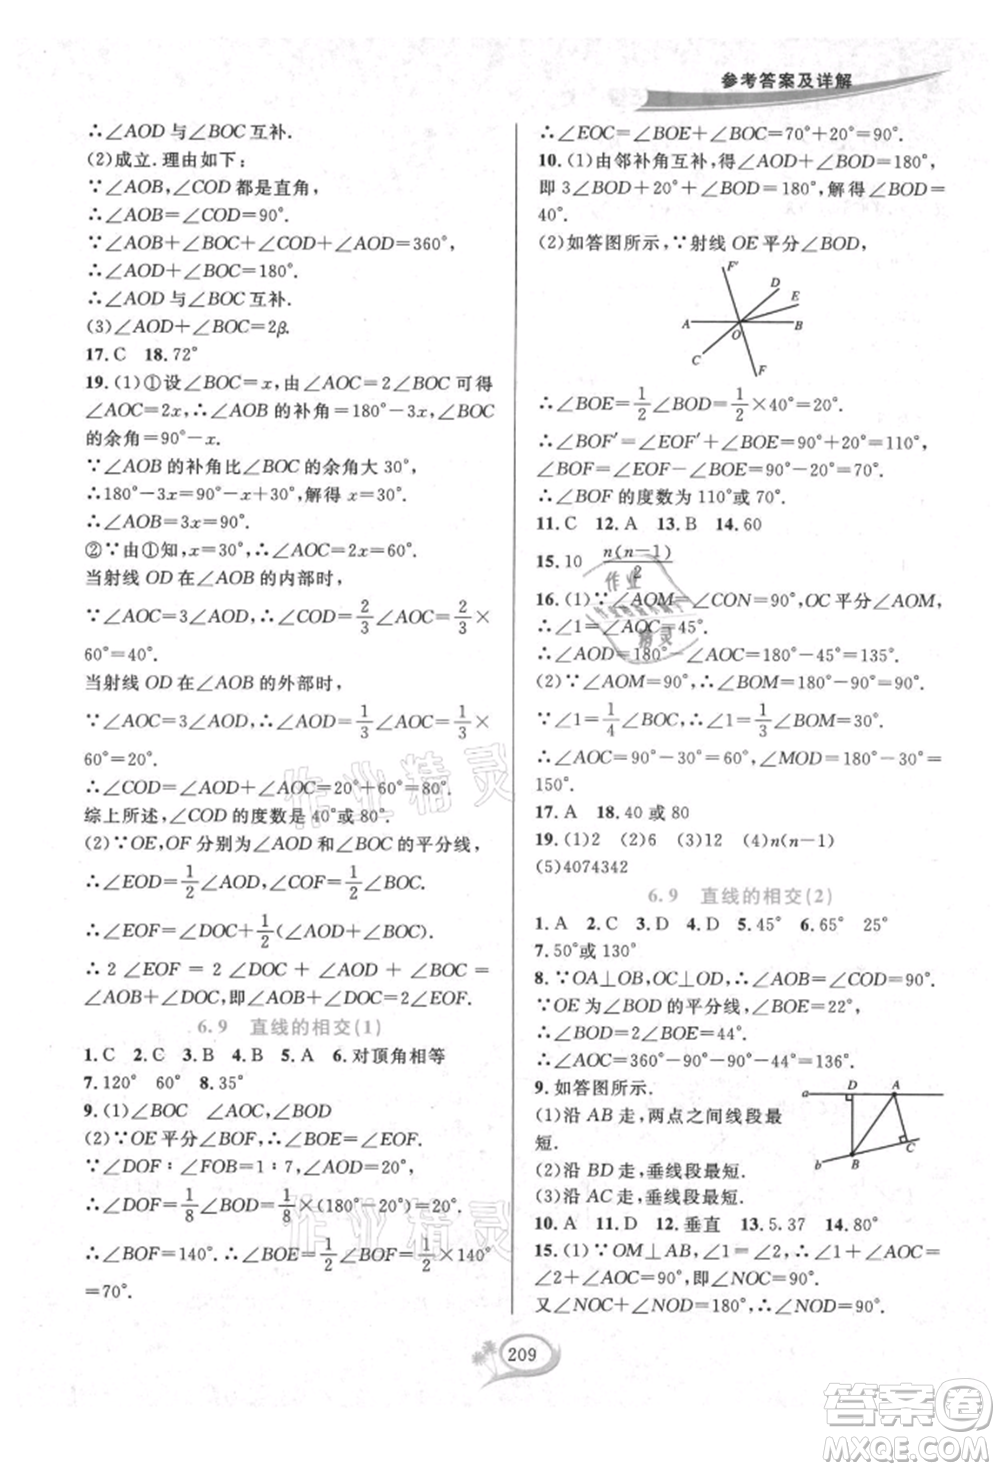 参考答案及详解
∴∠AOD与∠BOC互补.
(2)成立.理由如下:
∵∠AOB,∠COD都是直角,
∴∠AOB=∠COD=90°.
∵∠AOB+∠BOC+∠COD+∠AOD=360°,
∴∠AOD+∠BOC=180°.
∴∠AOD与∠BOC互补.
(3)∠AOD+∠BOC=2β.
17.C 18.72°
19.(1)①设∠BOC=x,由∠AOC=2∠BOC可得
∠AOC=2x,∴∠AOB的补角=180°-3x,∠BOC
的余角=90°-x.
∵∠AOB的补角比∠BOC的余角大30°,
∴180°-3x=90°-x+30°,解得x=30°.
∴∠AOB=3x=90°.
②∵由①知,x=30°,∴∠AOC=2x=60°.
当射线OD在∠AOB的内部时,
∵∠AOC=3∠AOD,∴∠COD=2/3∠AOC=2/3×
60°=40°.
当射线OD在∠AOB的外部时,
∵∠AOC=3∠AOD,∴∠AOD=1/3∠AOC=1/3×
60°=20°.
∴∠COD=∠AOD+∠AOC=20°+60°=80°.
综上所述,∠COD的度数是40°或80°.
(2)∵OE,OF分别为∠AOD和∠BOC的平分线,
∴∠EOD=1/2∠AOD,∠COF=1/2∠BOC.
∴∠EOF=∠DOC+1/2(∠AOD+∠BOC).
∴2∠EOF=2∠DOC+∠AOD+∠BOC=
∠AOB+∠DOC,即∠AOB+∠DOC=2∠EOF.
6.9 直线的相交(1)
1.C 2.C 3.B 4.B 5.A 6.对顶角相等
7.120° 60° 8.35°
9.(1)∠BOC ∠AOC,∠BOD
(2)∵OE平分∠BOF,∴∠BOE=∠EOF.
∵∠DOF∶∠BOF=1∶7,∠AOC=∠BOD,
∴∠DOF=1/8∠BOD=1/8×(180°-20°)=20°.
∴∠BOF=140°.∴∠BOE=1/2∠BOF=1/2×140°
=70°.
∴∠EOC=∠BOE+∠BOC=70°+20°=90°.
10.(1)由邻补角互补,得∠AOD+∠BOD=180°,
即3∠BOD+20°+∠BOD=180°,解得∠BOD=
40°.
(2)如答图所示,∵射线OE平分∠BOD,
F′
D
E
A
O
B
C
F
∴∠BOE=1/2∠BOD=1/2×40°=20°.
∴∠BOF′=∠EOF′+∠BOE=90°+20°=110°,
∠BOF=∠EOF-∠BOE=90°-20°=70°.
∴∠BOF的度数为110°或70°.
11.C 12.A 13.B 14.60
15.10 n(n-1)/2
16.(1)∵∠AOM=∠CON=90°,OC平分∠AOM,
∴∠1=∠AOC=45°.
∴∠AOD=180°-∠AOC=180°-45°=135°.
(2)∵∠AOM=90°,∴∠BOM=180°-90°=90°.
∵∠1=1/4∠BOC,∴∠1=1/3∠BOM=30°.
∴∠AOC=90°-30°=60°,∠MOD=180°-30°=
150°.
17.A 18.40或80
19.(1)2 (2)6 (3)12 (4)n(n-1)
(5)4074342
6.9 直线的相交(2)
1.A 2.C 3.D 4.D 5.45° 6.65° 25°
7.50°或130°
8.∵OA⊥OB,OC⊥OD,∴∠AOB=∠COD=90°.
∵OE为∠BOD的平分线,∠BOE=22°,
∴∠BOD=2∠BOE=44°.
∴∠AOC=360°-90°-90°-44°=136°.
9.如答图所示.
(1)沿AB走,两点之间线段最
短.
(2)沿BD走,垂线段最短.
(3)沿AC走,垂线段最短.
a
D
A
b
B
C
10.A 11.D 12.垂直 13.5.37 14.80°
15.(1)∵OM⊥AB,∴∠AOM=90°.
∴∠1+∠AOC=90°.∵∠1=∠2,
∴∠2+∠AOC=90°,即∠NOC=90°.
又∠NOC+∠NOD=180°,∴∠NOD=90°.
209
作业精灵
作业精灵
作业
精灵
答案卷
MXQE.COM